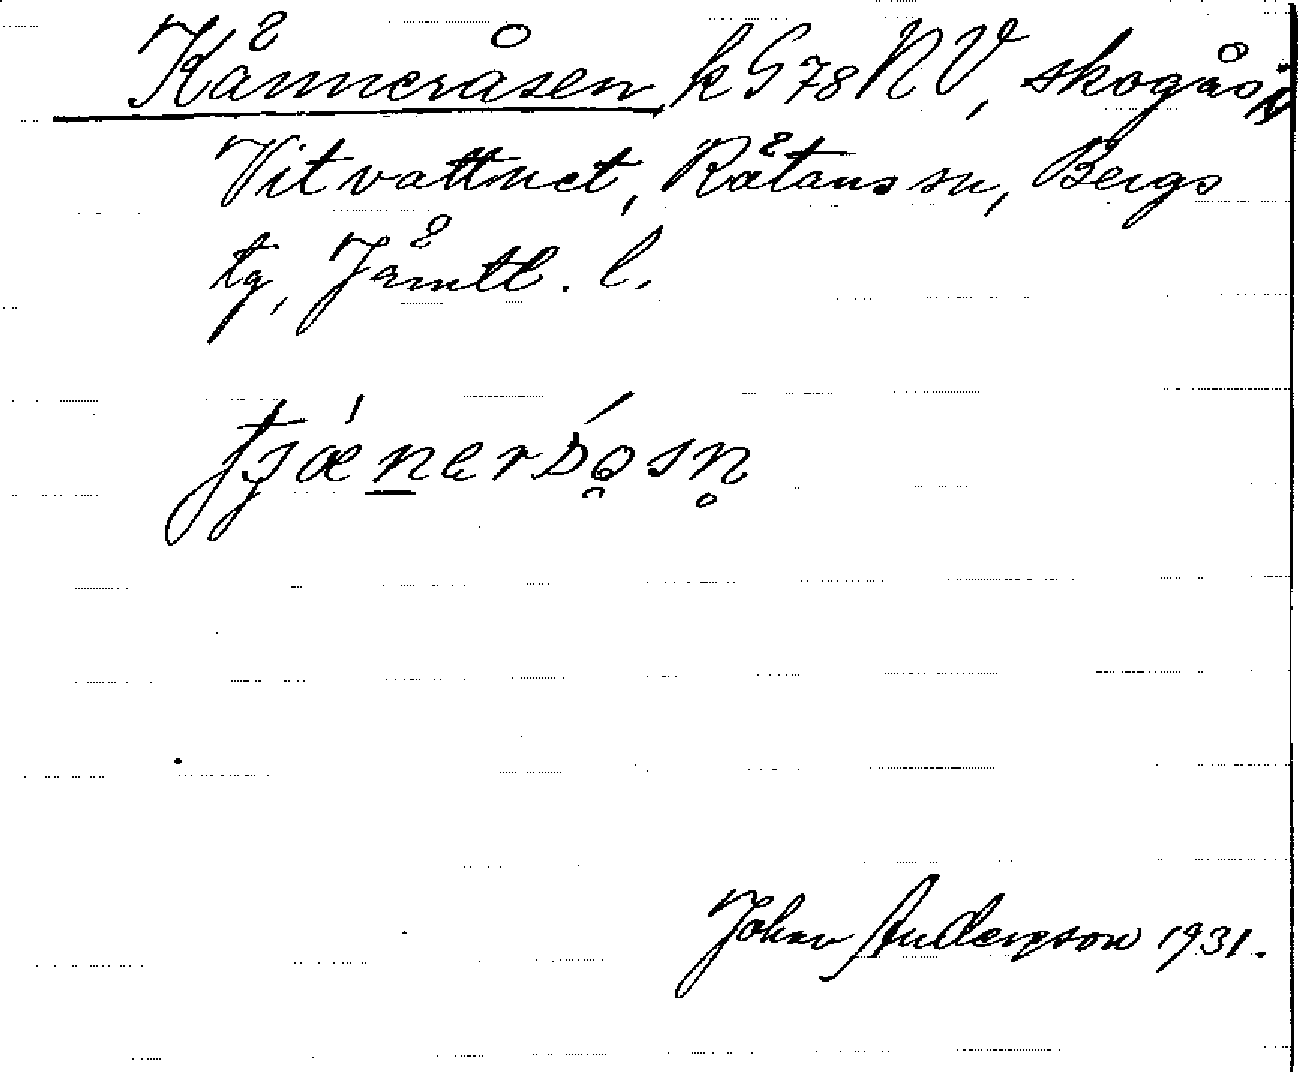 Kånneråsen k G 78 NV, skogås i
Vitvattnet, Råtans sn, Bergs
tg, Jämtl. l.
John Andersson 1931.